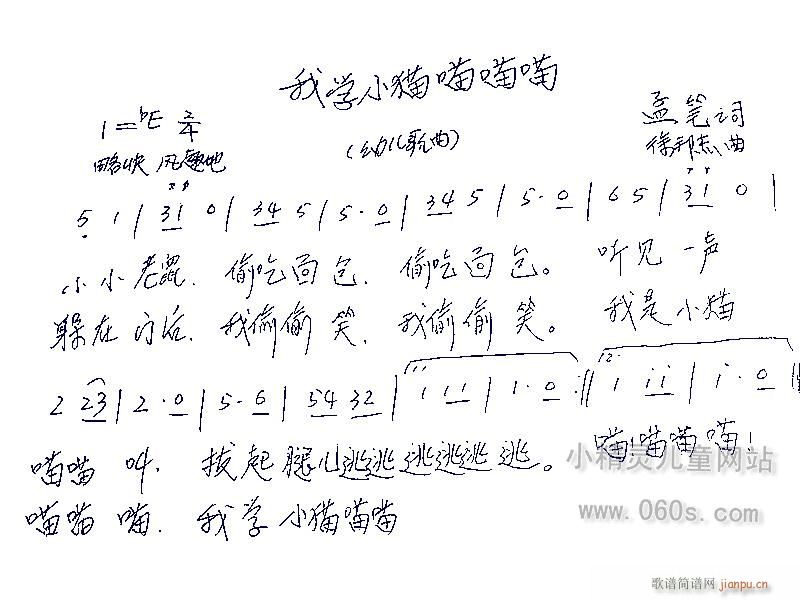 我学小猫喵喵喵
1=♭E 2/4
孟笔词
(幼儿歌曲)
略快 风趣地
徐邦杰曲
5 1 | 31 0 | 34 5 | 5·0 | 34 5 | 5·0 | 6 5 | 31 0 |
小小老鼠. 偷吃面包. 偷吃面包。 听见一声
躲在门后. 我偷偷笑. 我偷偷笑。 我是小猫
2 23 | 2·0 | 5·6 | 54 32 | 1 11 | 1·0 :|| 1 11 | 1·0 ||
喵喵叫. 拔起腿儿逃逃逃逃逃逃。 喵!喵喵喵!
喵喵喵. 我学小猫喵喵喵
小精灵儿童网站
www.060s.com
歌谱简谱网
jianpu.cn